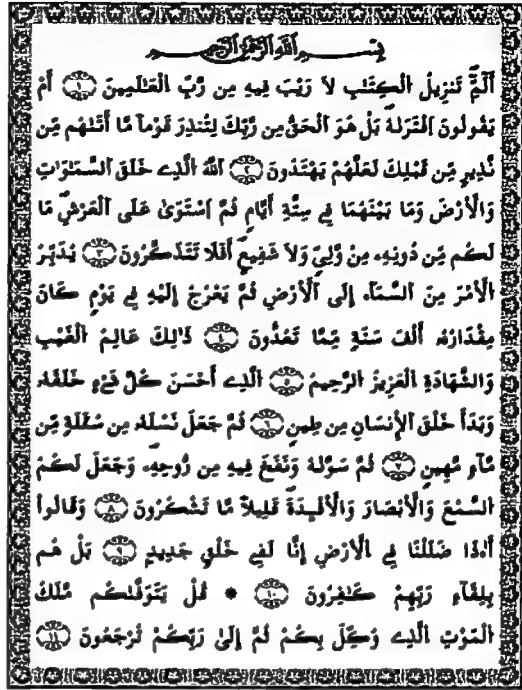 بِسْمِ اللَّهِ الرَّحْمَٰنِ الرَّحِيمِ
أَلَمِّ تَنزِيلُ الْكِتَابِ لاَ رَيْبَ فِيهِ مِن رَّبِّ الْعَالَمِينَ ١ أَمْ
يَقُولُونَ افْتَرَاهُ بَلْ هُوَ الْحَقُّ مِن رَّبِّكَ لِتُنذِرَ قَوْماً مَّا أَتَاهُم مِّن
نَّذِيرٍ مِّن قَبْلِكَ لَعَلَّهُمْ يَهْتَدُونَ ٢ اللَّهُ الَّذِي خَلَقَ السَّمَاوَاتِ
وَالْأَرْضَ وَمَا بَيْنَهُمَا فِي سِتَّةِ أَيَّامٍ ثُمَّ اسْتَوَىٰ عَلَى الْعَرْشِ مَا
لَكُم مِّن دُونِهِ مِنْ وَّلِيٍّ وَلاَ شَفِيعٍ أَفَلَا تَتَذَكَّرُونَ ٣ يُدَبِّرُ
الْأَمْرَ مِنَ السَّمَاءِ إِلَى الْأَرْضِ ثُمَّ يَعْرُجُ إِلَيْهِ فِي يَوْمٍ كَانَ
مِقْدَارُهُ أَلْفَ سَنَةٍ مِّمَّا تَعُدُّونَ ٤ ذَٰلِكَ عَالِمُ الْغَيْبِ
وَالشَّهَادَةِ الْعَزِيزُ الرَّحِيمُ ٥ الَّذِي أَحْسَنَ كُلَّ شَيْءٍ خَلَقَهُ
وَبَدَأَ خَلْقَ الْإِنسَانِ مِن طِينٍ ٦ ثُمَّ جَعَلَ نَسْلَهُ مِن سُلَالَةٍ مِّن
مَّاءٍ مَّهِينٍ ٧ ثُمَّ سَوَّاهُ وَنَفَخَ فِيهِ مِن رُّوحِهِ وَجَعَلَ لَكُم
السَّمْعَ وَالْأَبْصَارَ وَالْأَفْئِدَةَ قَلِيلاً مَّا تَشْكُرُونَ ٨ وَقَالُوا
أَءِذَا ضَلَلْنَا فِي الْأَرْضِ إِنَّا لَفِي خَلْقٍ جَدِيدٍ ٩ بَلْ هُم
بِلِقَاءِ رَبِّهِمْ كَافِرُونَ ١٠ * قُلْ يَتَوَفَّاكُم مَّلَكُ
الْمَوْتِ الَّذِي وُكِّلَ بِكُمْ ثُمَّ إِلَىٰ رَبِّكُمْ تُرْجَعُونَ ١١